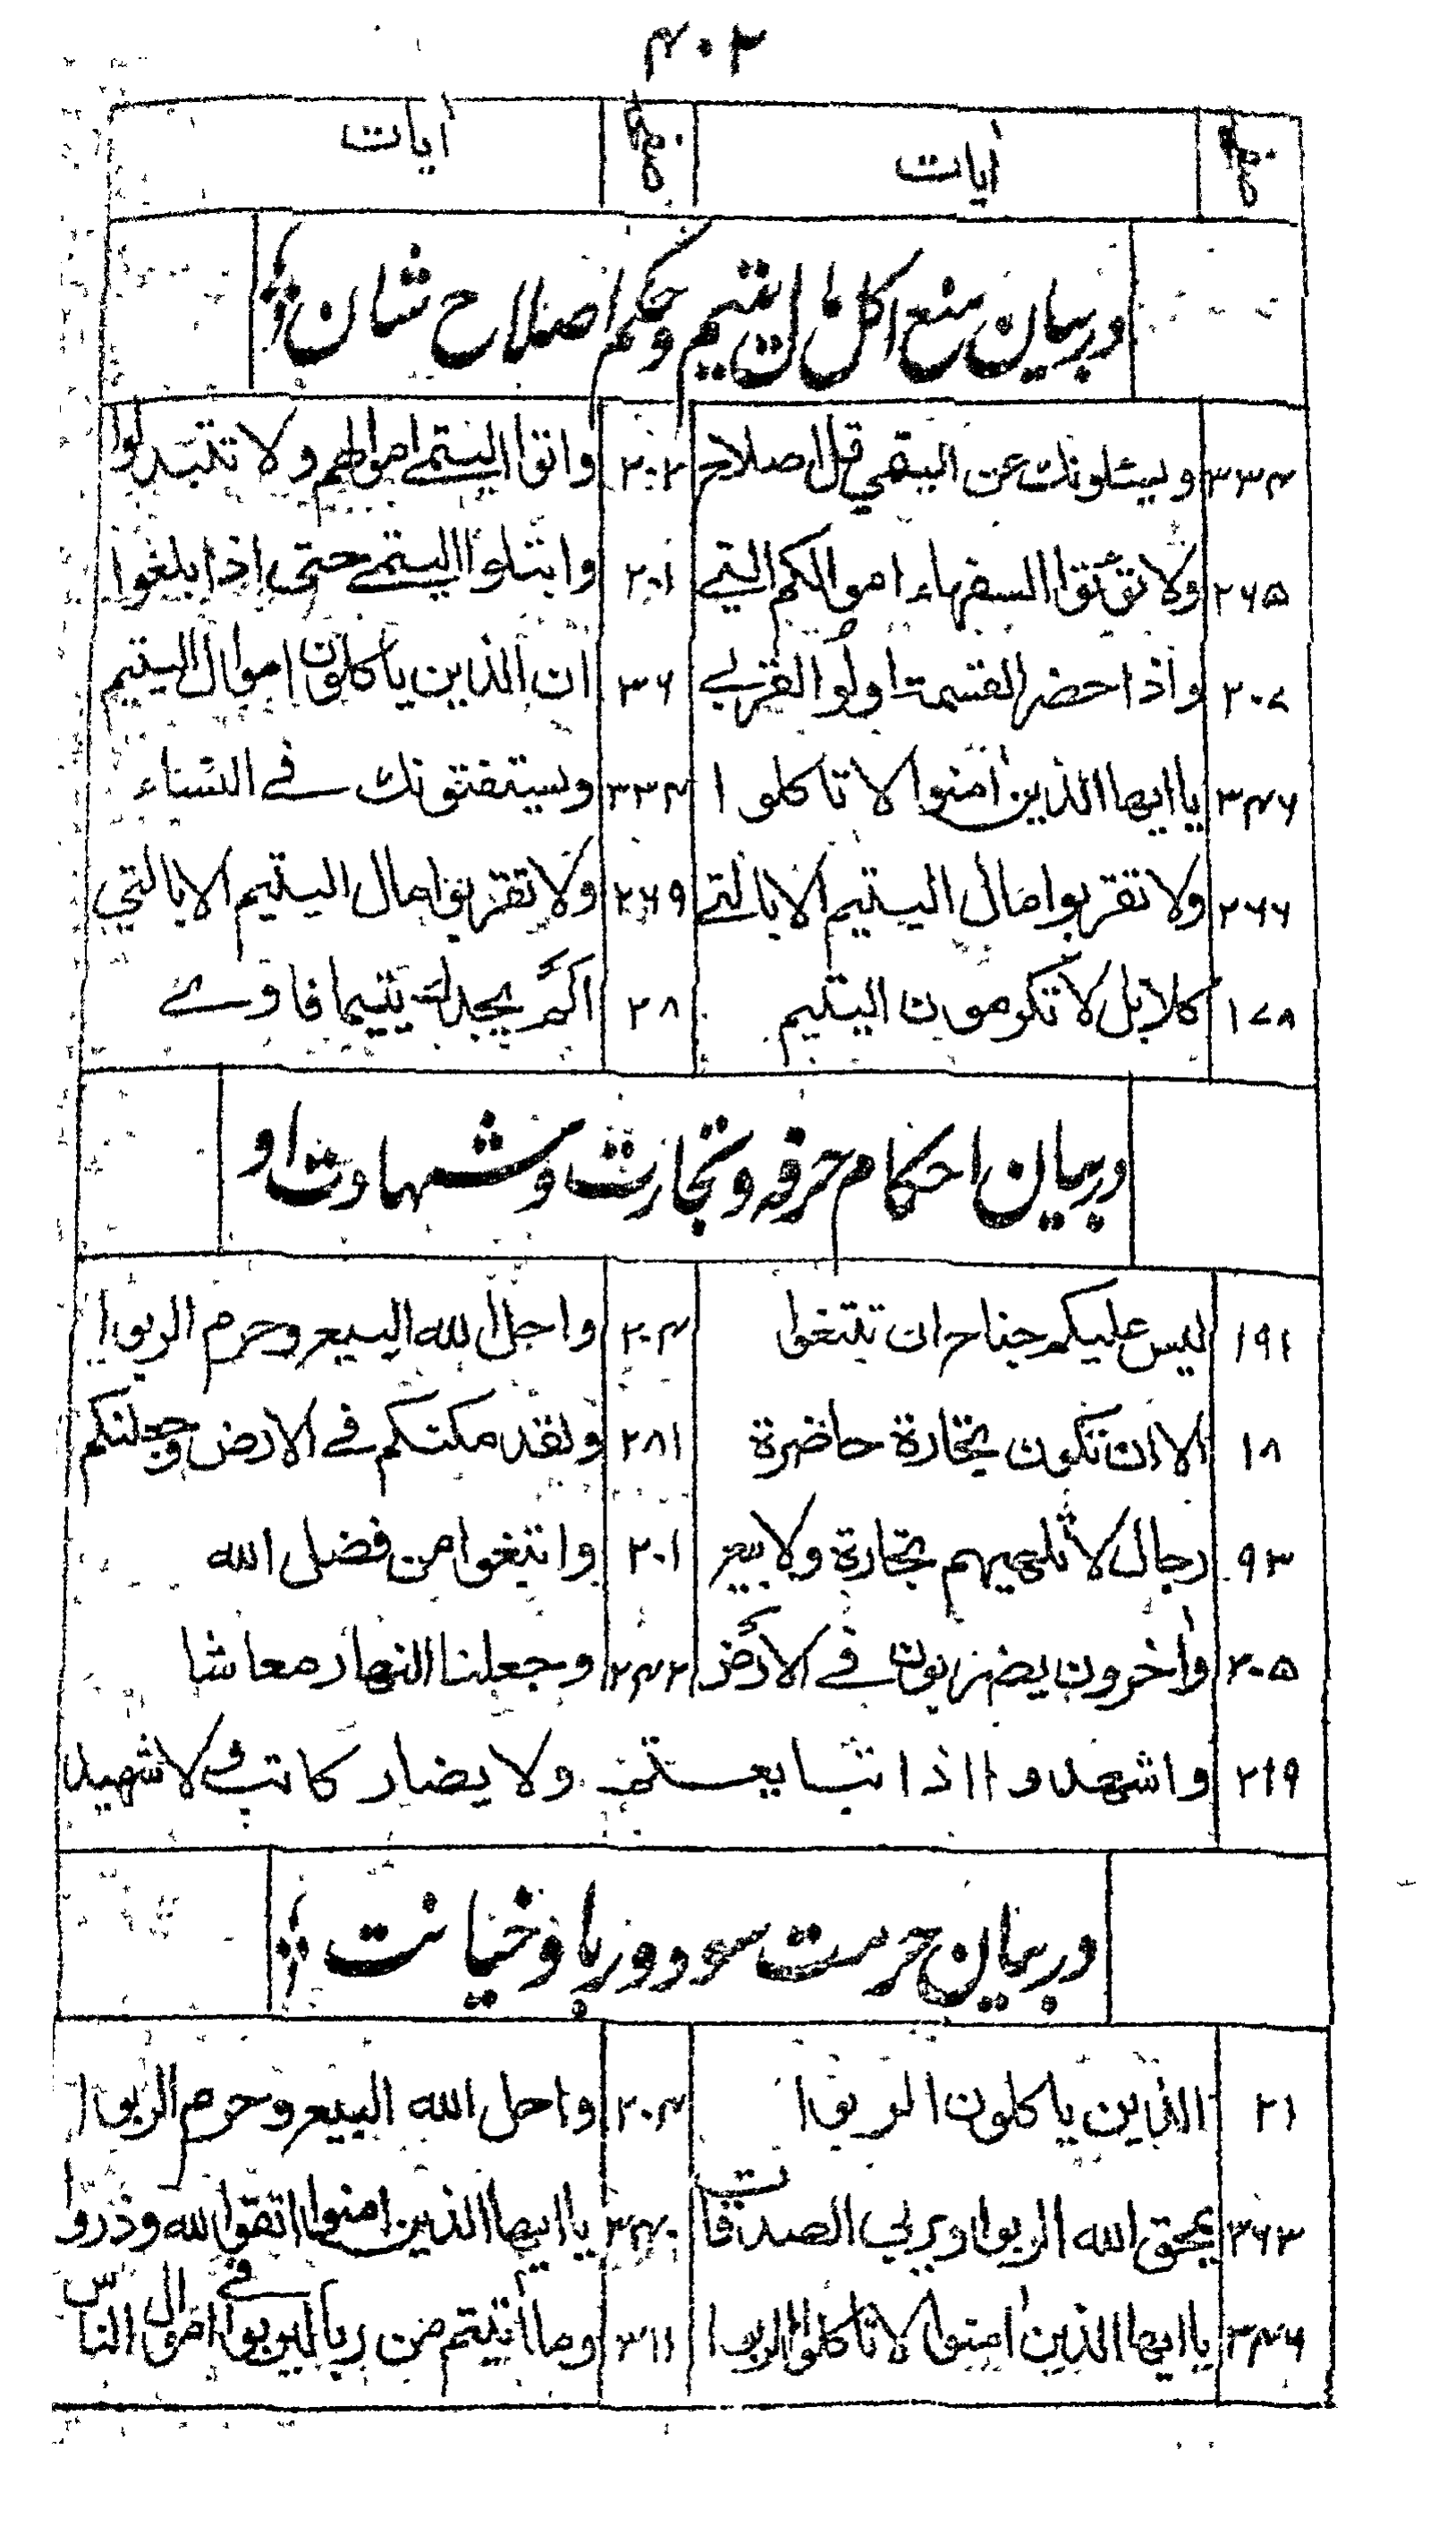 ۴۰۲
صفحہ آیات صفحہ آیات
در بیان منع اکل مال یتیم و حکم اصلاح شان
۳۳۴ ویسئلونک عن الیتمی قل اصلاح ۲۰۲ واتوا الیتمی اموالهم ولا تتبدلوا
۲۶۵ ولا تؤتوا السفهاء اموالکم التی ۲۰۱ وابتلوا الیتمی حتی اذا بلغوا
۲۰۷ واذا حضر القسمة اولوا القربی ۳۶ ان الذین یاکلون اموال الیتیم
۳۴۶ یا ایها الذین امنوا لا تاکلوا ۳۳۴ ویستفتونک فی النساء
۲۶۶ ولا تقربوا مال الیتیم الا بالتی ۲۶۹ ولا تقربوا مال الیتیم الا بالتی
۱۷۸ کلا بل لا تکرمون الیتیم ۲۸ الم یجدک یتیما فاوی
در بیان احکام حرفه و تجارت و شهادت او
۱۹۱ لیس علیکم جناح ان تبتغوا ۲۰۴ واحل الله البیع وحرم الربوا
۱۸ الا ان تکون تجارة حاضرة ۲۸۱ ولقد مکنکم فی الارض وجعلنکم
۹۳ رجال لا تلهیهم تجارة ولا بیع ۲۰۱ وابتغوا من فضل الله
۲۰۵ واخرون یضربون فی الارض ۲۴۲ وجعلنا النهار معاشا
۲۱۹ واشهدوا اذا تبایعتم ولا یضار کاتب ولا شهید
در بیان حرمت سود و ربا و خیانت
۲۱ الذین یاکلون الربوا ۲۰۴ واحل الله البیع وحرم الربوا
۳۶۳ یمحق الله الربوا ویربی الصدقات ۳۴۰ یا ایها الذین امنوا اتقوا الله وذروا
۳۴۶ یا ایها الذین امنوا لا تاکلوا الربوا ۳۱۱ وما اتیتم من ربا لیربوا فی اموال الناس